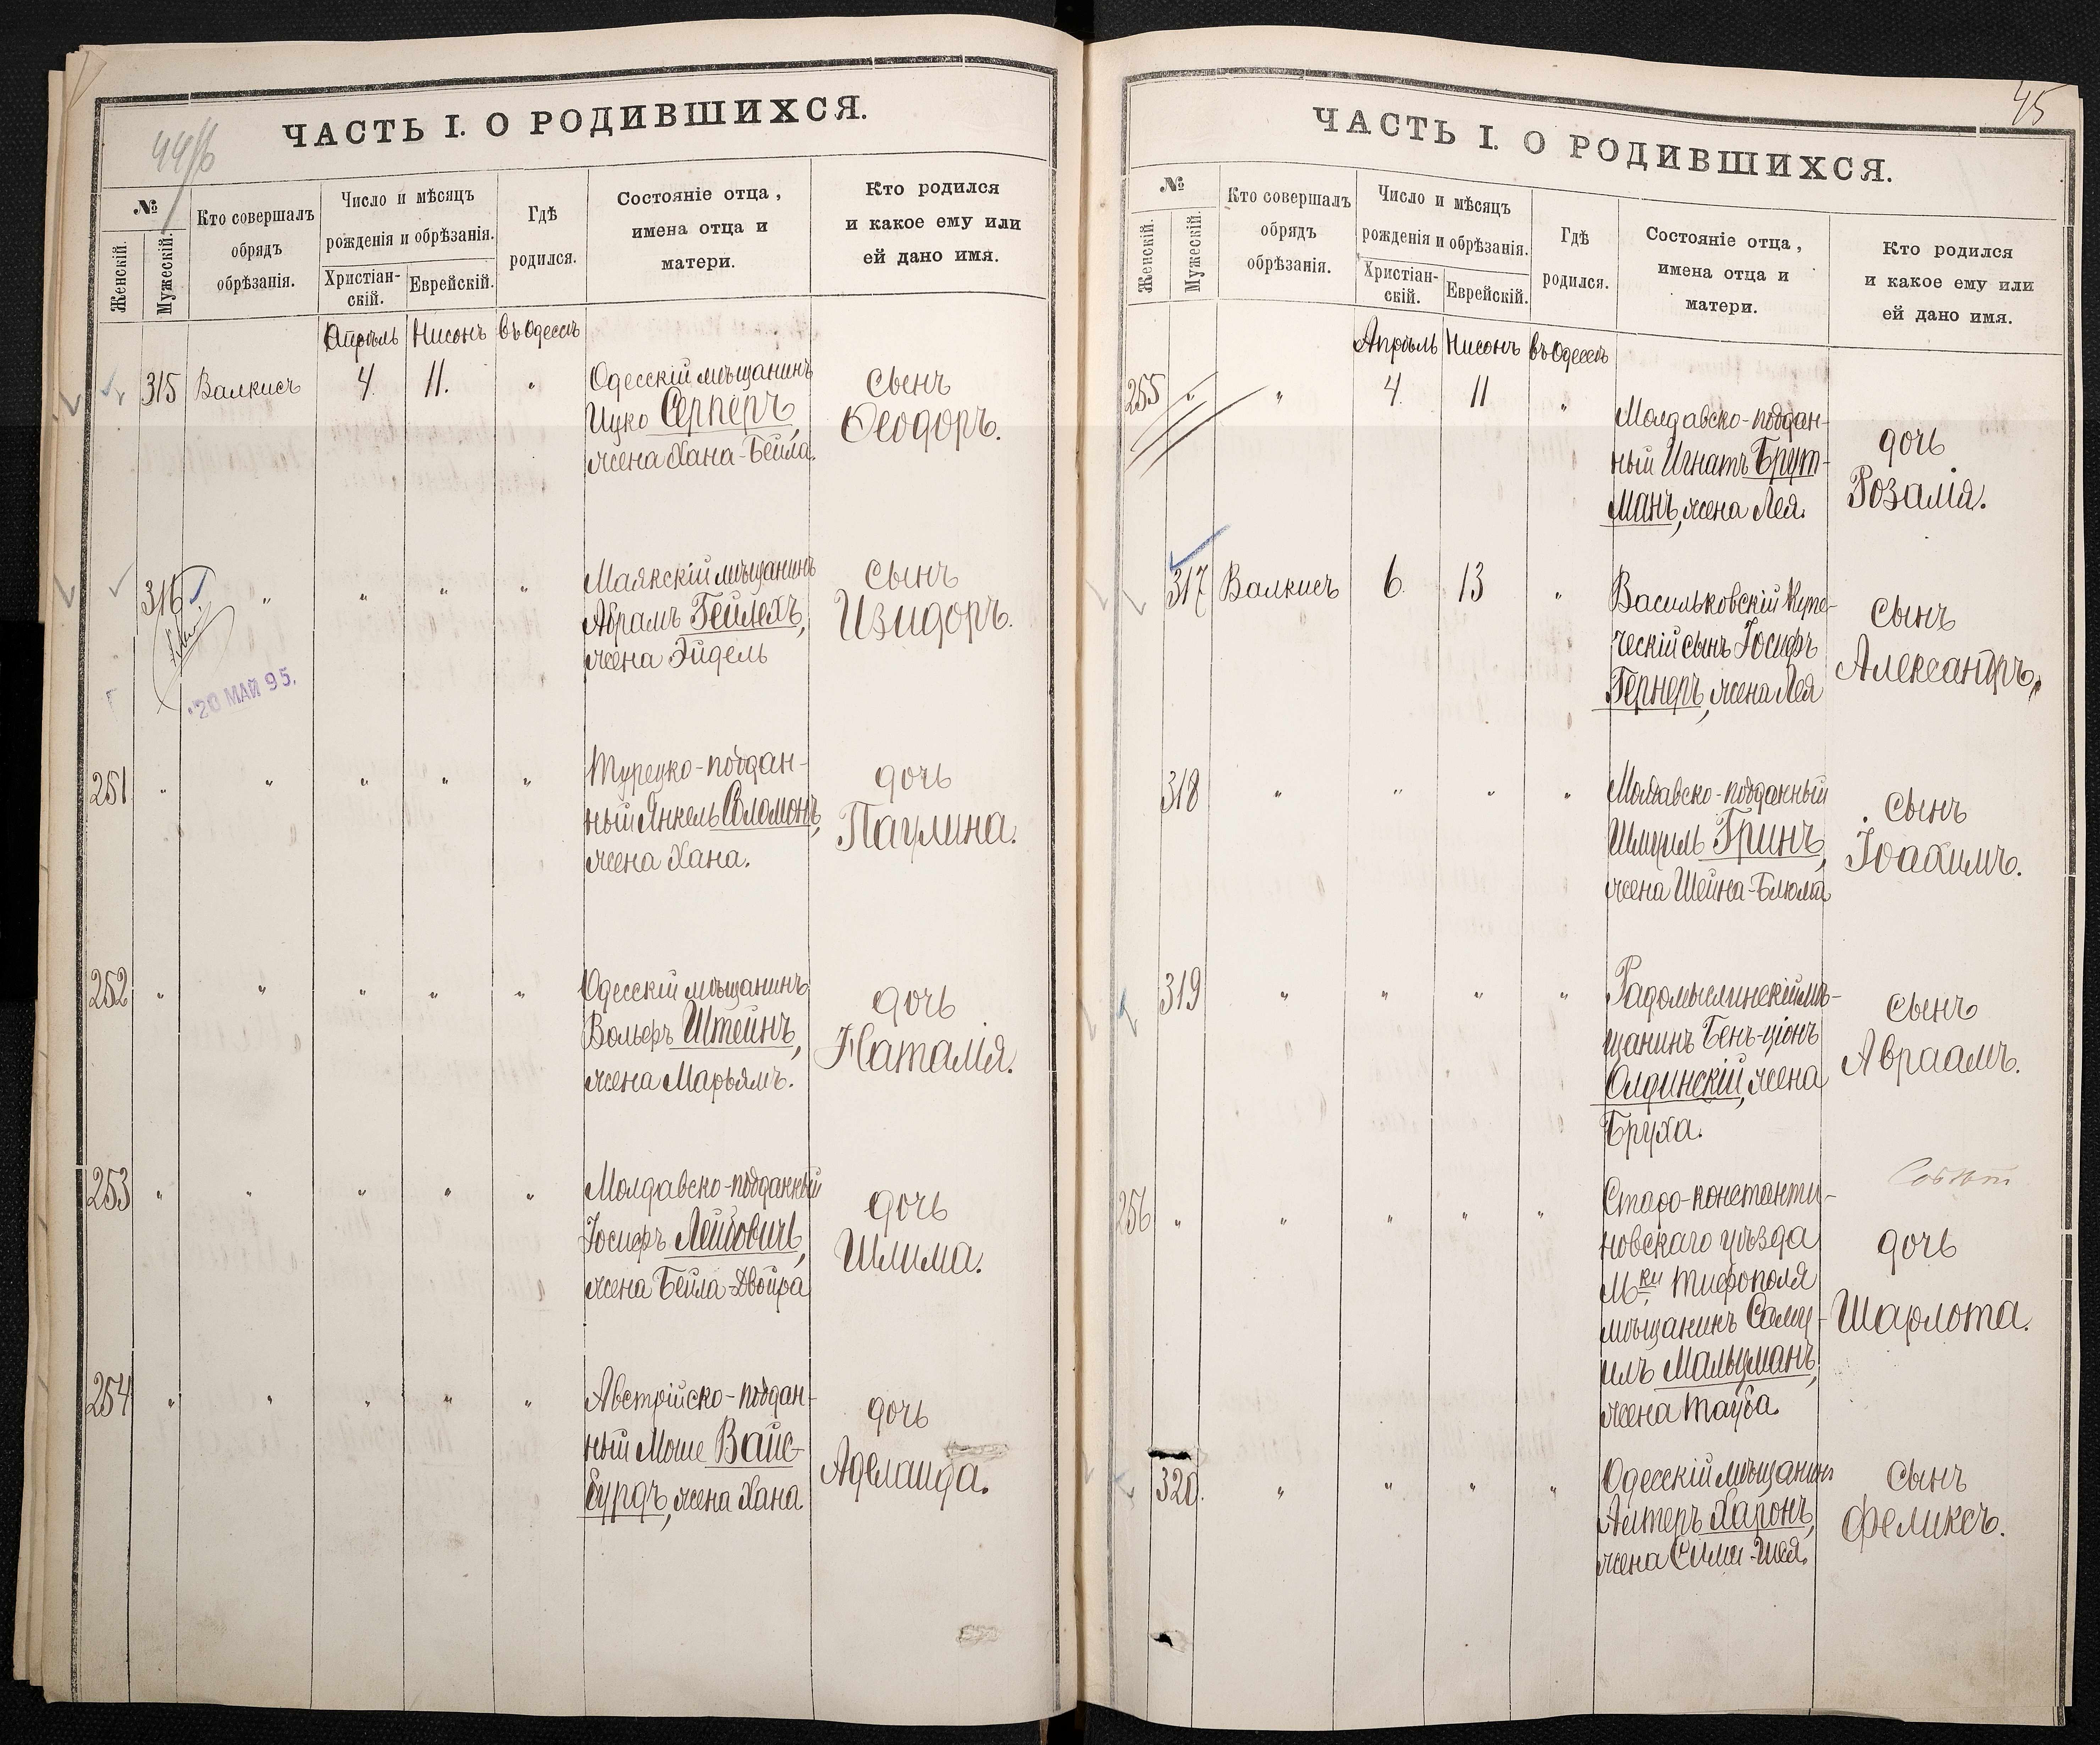 44/б
ЧАСТЬ I. О РОДИВШИХСЯ.
№
Женскій.
Мужескій.
Кто совершалъ
обрядъ
обрѣзанія.
Число и мѣсяцъ
рожденія и обрѣзанія.
Христіан-
скій.
Еврейскій.
Гдѣ
родился.
Состояніе отца,
имена отца и
матери.
Кто родился
и какое ему или
ей дано имя.
Апрѣль Нисонъ въ Одессѣ
315 Валкисъ 4. 11. "
Одесскій мѣщанинъ
Ицко Серперъ,
жена Хана-Бейла.
сынъ
Ѳеодоръ.
316 " " " "
Маякскій мѣщанинъ
Абрамъ Гейлехъ,
жена Эйдель
сынъ
Изидоръ.
20 МАЙ 95.
251 " " " " "
Турецко-поддан-
ный Янкель Соломонъ,
жена Хана.
дочь
Паулина.
252 " " " " "
Одесскій мѣщанинъ
Вольфъ Штейнъ,
жена Марьямъ.
дочь
Наталія.
253 " " " " "
Молдавско-подданный
Іосифъ Лейбовичъ,
жена Бейла-Двойра
дочь
Шлима.
254 " " " " "
Австрійско-поддан-
ный Моше Вайс-
бурдъ, жена Хана.
дочь
Аделаида.
45
ЧАСТЬ I. О РОДИВШИХСЯ.
№
Женскій.
Мужескій.
Кто совершалъ
обрядъ
обрѣзанія.
Число и мѣсяцъ
рожденія и обрѣзанія.
Христіан-
скій.
Еврейскій.
Гдѣ
родился.
Состояніе отца,
имена отца и
матери.
Кто родился
и какое ему или
ей дано имя.
Апрѣль Нисонъ въ Одессѣ
255 " " 4. 11 "
Молдавско-поддан-
ный Игнатъ Брут-
манъ, жена Лея.
дочь
Розалія.
317 Валкисъ 6. 13 "
Васильковскій купе-
ческій сынъ Іосифъ
Гернеръ, жена Лея
сынъ
Александръ.
318 " " " "
Молдавско-подданный
Шмуиль Гринъ,
жена Шейна-Блюма
сынъ
Іоахимъ.
319 " " " "
Радомыслинскій мѣ-
щанинъ Бенъ-ціонъ
Олдинскій, жена
Бруха.
сынъ
Авраамъ.
256 " " " " "
Старо-константи-
новскаго уѣзда
М.ки Тифополя
мѣщанинъ Саму-
илъ Мальцманъ,
жена Тауба.
дочь
Шарлота.
320. " " " "
Одесскій мѣщанинъ
Алтеръ Харонъ,
жена Сима-Шея.
сынъ
Феликсъ.